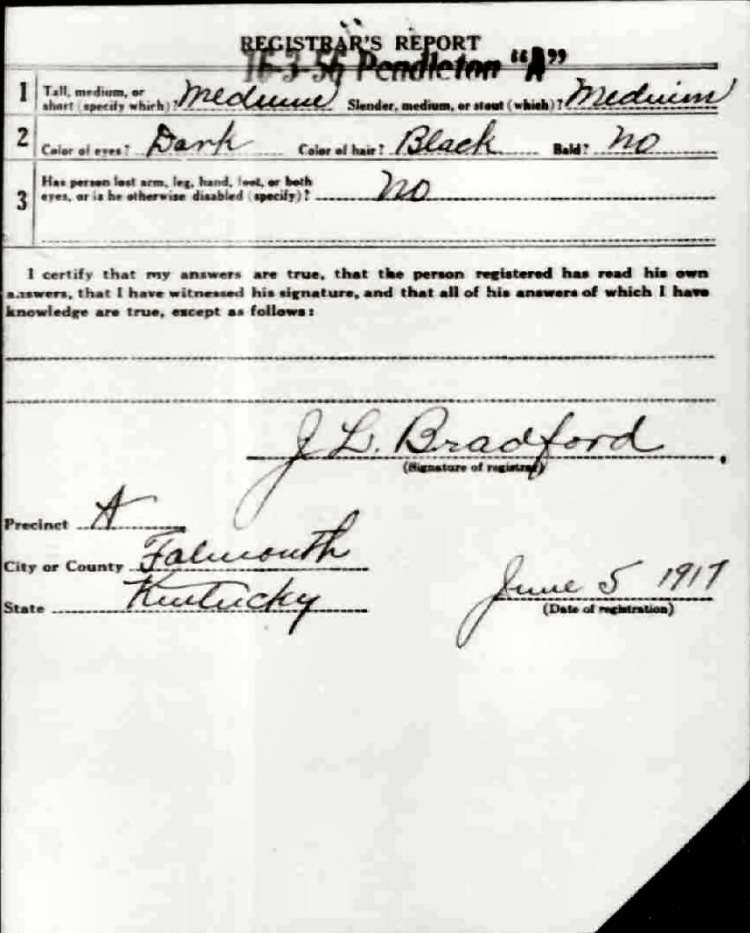 REGISTRAR'S REPORT
16-3-56 Pendleton "A"
1 Tall, medium, or short (specify which)? Medium Slender, medium, or stout (which)? Medium
2 Color of eyes? Dark Color of hair? Black Bald? No
3 Has person lost arm, leg, hand, foot, or both
eyes, or is he otherwise disabled (specify)? No
I certify that my answers are true, that the person registered has read his own
answers, that I have witnessed his signature, and that all of his answers of which I have
knowledge are true, except as follows:
J. L. Bradford
(Signature of registrar)
Precinct A
City or County Falmouth
State Kentucky
June 5 1917
(Date of registration)